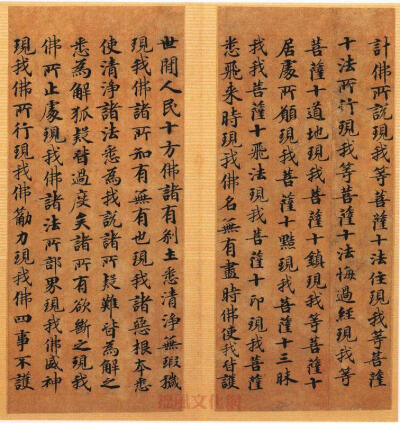 計佛所說現我等菩薩十法住現我等菩薩
十法所行現我等菩薩十法悔過經現我等
菩薩十道地現我菩薩十鎮現我等菩薩十
居處所願現我菩薩十黠現我菩薩十三昧
我我菩薩十飛法現我菩薩十印現我菩薩
悉飛来時現我佛名無有盡時佛使我身護
世間人民十方佛諸有刹土悉清淨無瑕穢
現我佛諸所知有無有也現我諸慈根本悉
使清淨諸法悉為我說諸所疑難皆為解之
悉為解狐疑皆過度矣諸所有欲斷之現我
佛所止處現我佛諸法所部界現我佛威神
現我佛所行現我佛勸力現我佛四事不護
文化網